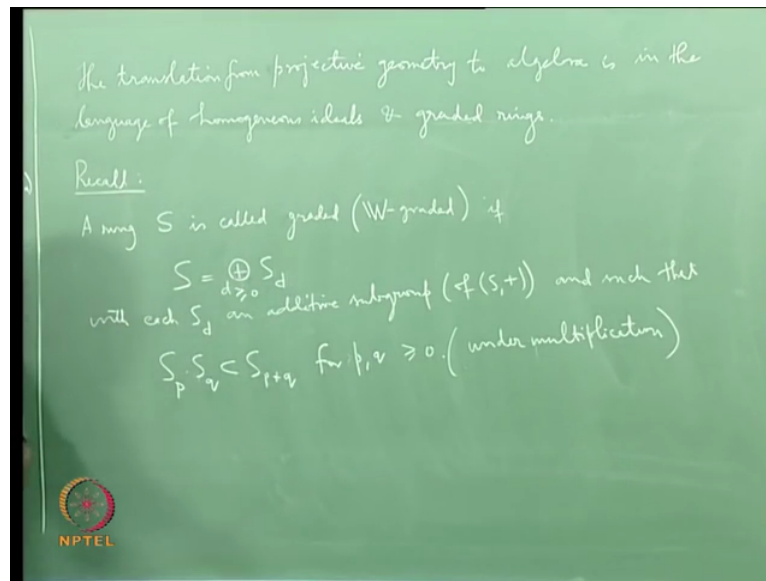 The translation from projective geometry to algebra is in the
language of homogeneous ideals & graded rings.
Recall:
A ring S is called graded (W-graded) if
S = ⊕_{d≥0} S_d
with each S_d an additive subgroup (of (S,+)) and such that
S_p·S_q ⊂ S_{p+q} for p,q ≥ 0. (under multiplication)
NPTEL